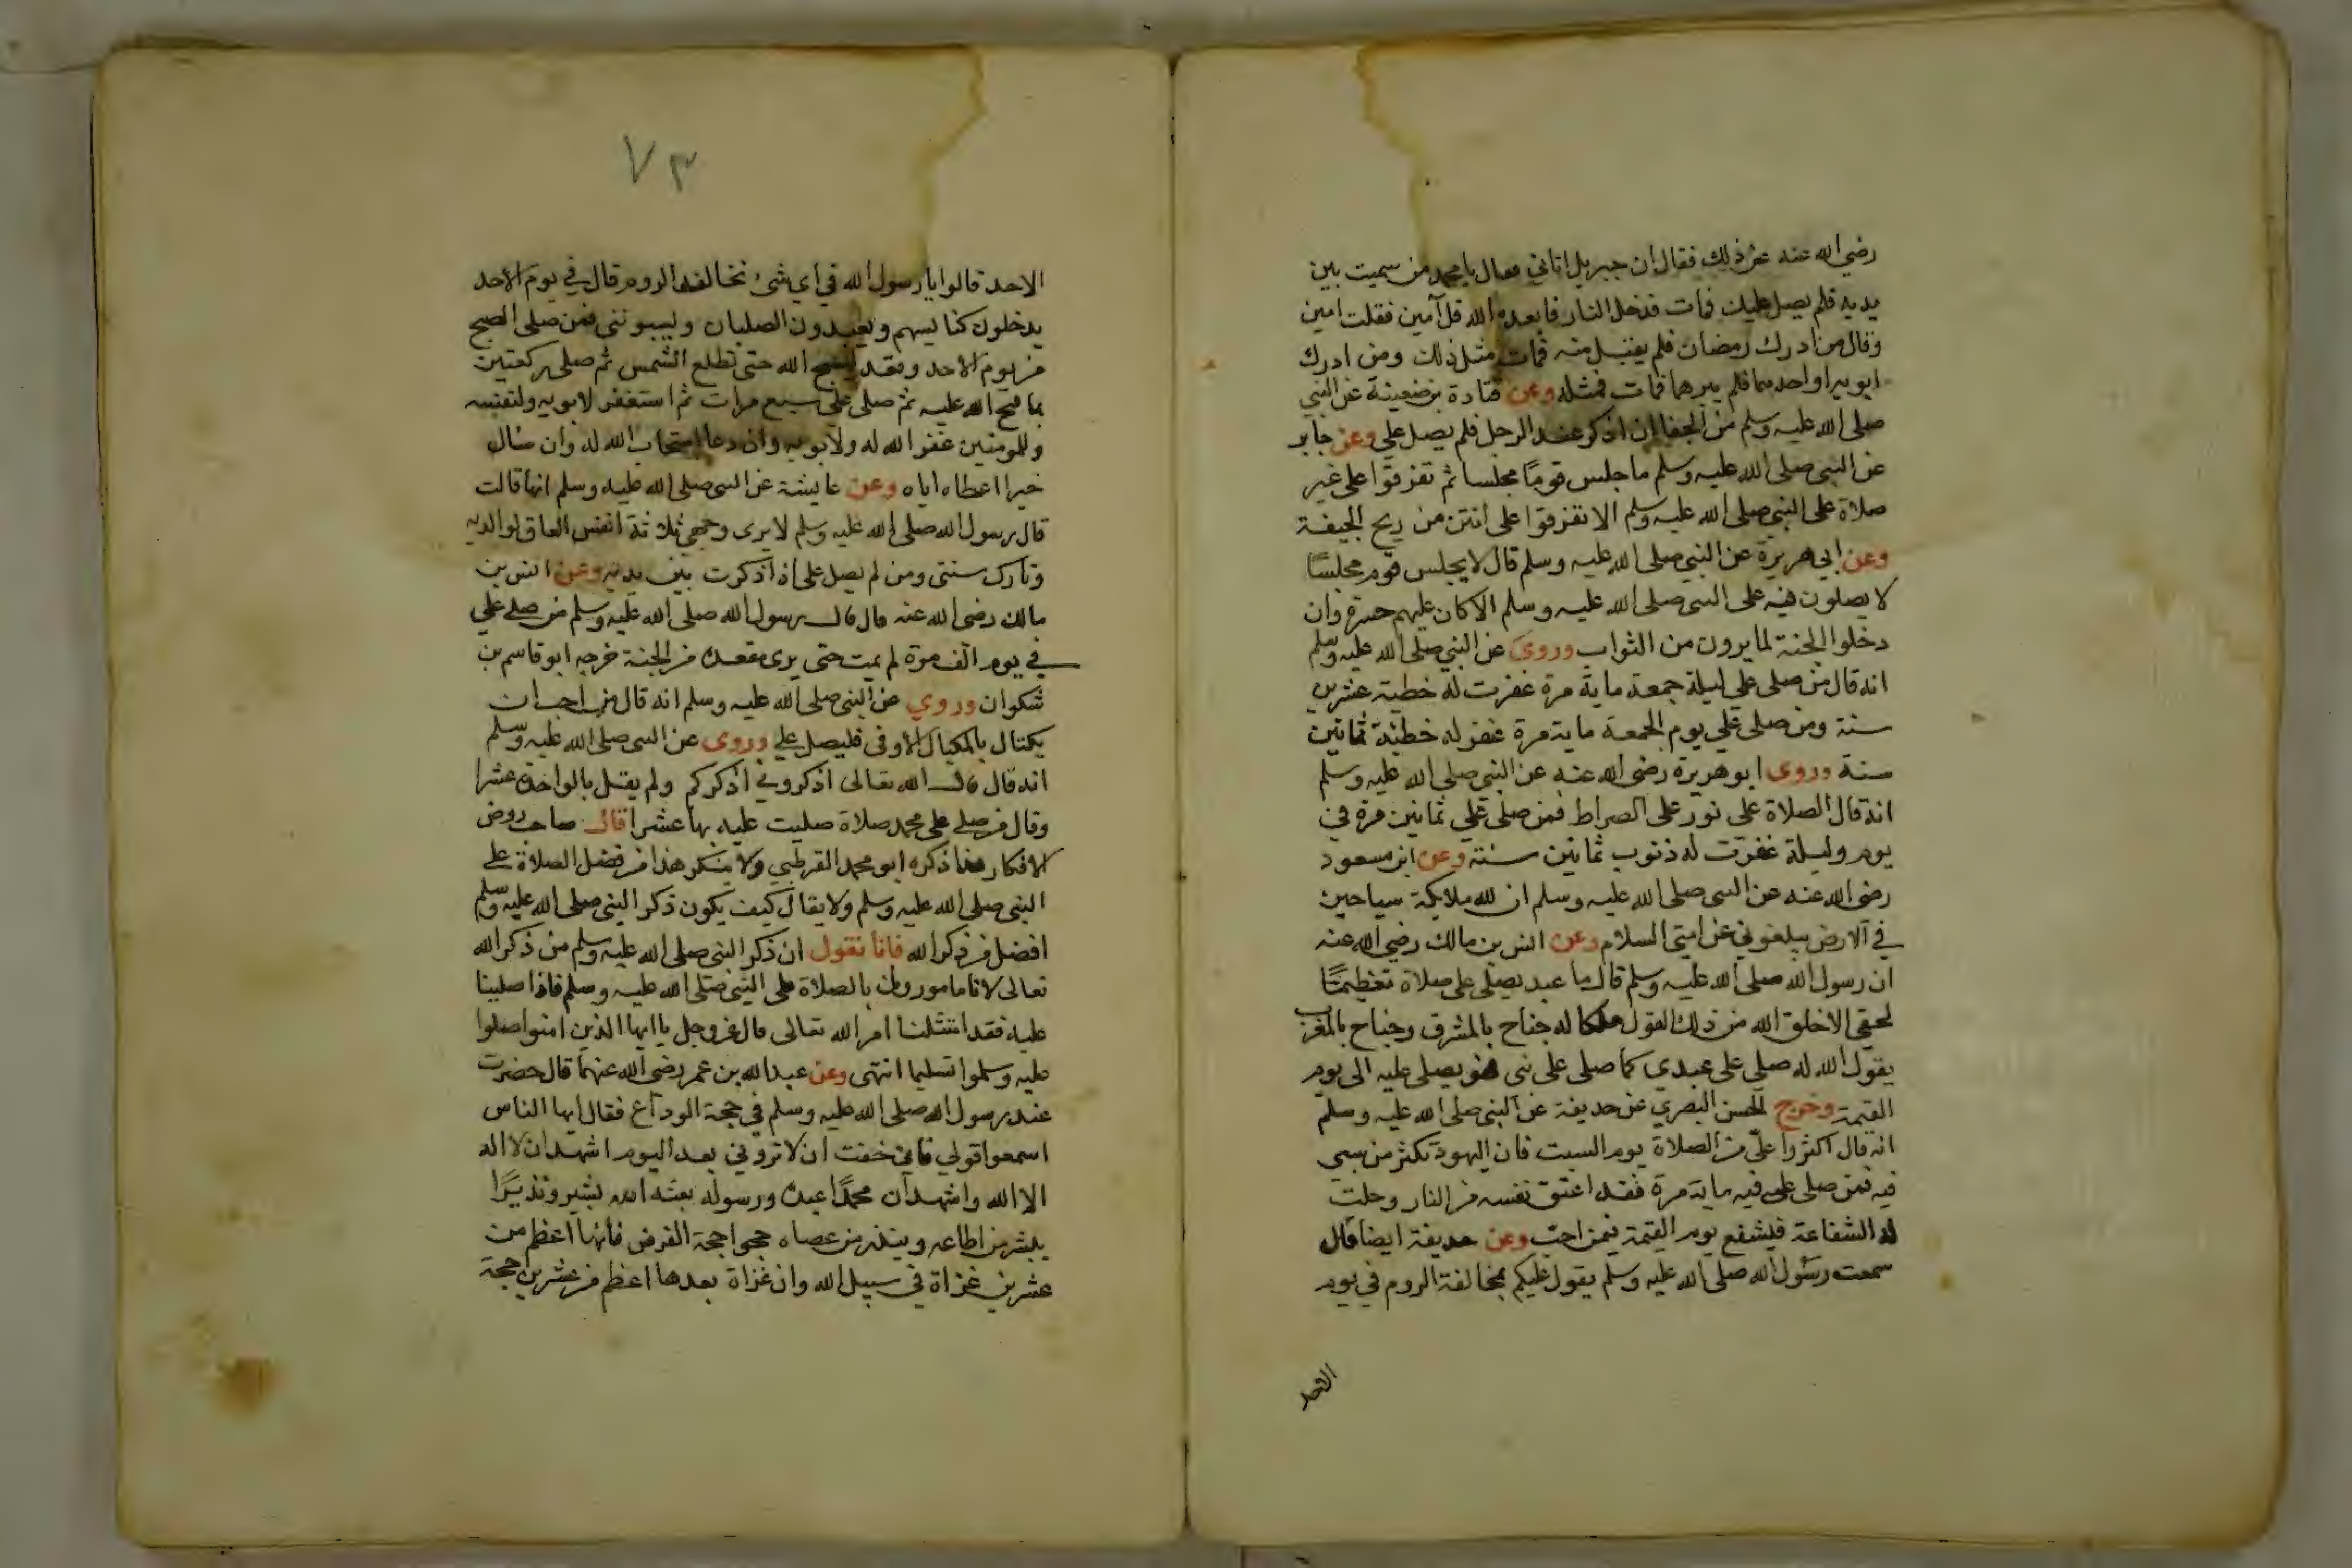 رضي الله عنه عن ذلك فقال ان جبريل اتاني فقال يا محمد من سميت بين
يديه فلم يصل عليك فمات فدخل النار فابعده الله قل آمين فقلت امين
وقال من ادرك رمضان فلم يقبل منه فمات مثل ذلك ومن ادرك
ابويه او احدهما فلم يبرهما فمات فمثله وعن قتادة عن النبي
صلى الله عليه وسلم من الجفا ان اذكر عند الرجل فلم يصل علي وعن جابر
عن النبي صلى الله عليه وسلم ما جلس قوما مجلسا ثم تفرقوا على غير
صلاة على النبي صلى الله عليه وسلم الا تفرقوا على انتن من ريح الجيفة
وعن ابي هريرة عن النبي صلى الله عليه وسلم قال لا يجلس قوم مجلسا
لا يصلون فيه على النبي صلى الله عليه وسلم الا كان عليهم حسرة وان
دخلوا الجنة لما يرون من الثواب وروي عن النبي صلى الله عليه وسلم
انه قال من صلى علي ليلة جمعة ماية مرة غفرت له خطية عشرين
سنة ومن صلى علي يوم الجمعة ماية مرة غفر له خطية ثمانين
سنة وروى ابو هريرة رضى الله عنه عن النبي صلى الله عليه وسلم
انه قال الصلاة على نور على الصراط فمن صلى علي ثمانين مرة في
يوم وليلة غفرت له ذنوب ثمانين سنة وعن ابن مسعود
رضى الله عنه عن النبى صلى الله عليه وسلم ان لله ملايكة سياحين
في الارض يبلغوني عن امتي السلام وعن انس بن مالك رضي الله عنه
ان رسول الله صلى الله عليه وسلم قال ما عبد يصلى على صلاة تعظيما
لحقي الا خلق الله من ذلك القول ملكا له جناح بالمشرق وجناح بالمغرب
يقول الله له صلي على عبدي كما صلى على نبى فهو يصلى عليه الى يوم
القيمة وخرج الحسن البصري عن حذيفة عن النبي صلى الله عليه وسلم
انه قال اكثروا علي من الصلاة يوم السبت فان اليهود تكثر من سبي
فيه فمن صلى علي فيه ماية مرة فقد اعتق نفسه من النار وحلت
له الشفاعة فيشفع يوم القيمة فيمن احب وعن حذيفة ايضا قال
سمعت رسول الله صلى الله عليه وسلم يقول عليكم بمخالفة الروم في يوم
الاحد
٧٣
الاحد قالوا يا رسول الله في اي شئ نخالف الروم قال في يوم الاحد
يدخلون كنايسهم ويعبدون الصلبان ويسبونني فمن صلى الصبح
من يوم الاحد وقعد يسبح الله حتى تطلع الشمس ثم صلى ركعتين
بما فتح الله عليه ثم صلى علي سبع مرات ثم استغفر لابويه ولنفسه
وللمومنين غفر الله له ولابويه وان دعا استجاب الله له وان سال
خيرا اعطاه اياه وعن عايشة عن النبى صلى الله عليه وسلم انها قالت
قال رسول الله صلى الله عليه وسلم لا يرى وجهي ثلاثة انفس العاق لوالديه
وتارك سنتي ومن لم يصل على اذا ذكرت بين يديه وعن انس بن
مالك رضى الله عنه قال قال رسول الله صلى الله عليه وسلم من صلى علي
في يوم الف مرة لم يمت حتى يرى مقعده من الجنة خرجه ابو قاسم بن
شكوان وروي عن النبي صلى الله عليه وسلم انه قال من احب ان
يكتال بالمكيال الاوفى فليصل علي وروى عن النبى صلى الله عليه وسلم
انه قال قال الله تعالى اذكروني اذكركم ولم يقل بالواحدة عشرا
وقال من صلى على محمد صلاة صليت عليه بها عشرا قال صاحب روض
الافكار هذا ذكره ابو محمد القرطبي ولا ينكر هذا من فضل الصلاة على
النبي صلى الله عليه وسلم ولا يقال كيف يكون ذكر النبي صلى الله عليه وسلم
افضل من ذكر الله فانا نقول ان ذكر النبي صلى الله عليه وسلم من ذكر الله
تعالى لانا مامورون بالصلاة على النبي صلى الله عليه وسلم فاذا صلينا
عليه فقد امتثلنا امر الله تعالى قال عز وجل يا ايها الذين امنوا صلوا
عليه وسلموا تسليما انتهى وعن عبد الله بن عمر رضى الله عنهما قال حضرت
عند رسول الله صلى الله عليه وسلم في حجة الوداع فقال ايها الناس
اسمعوا قولي فاني خفت ان لا تروني بعد اليوم اشهد ان لا اله
الا الله واشهد ان محمدا عبده ورسوله بعثه الله بشير ونذيرا
يبشر من اطاعه وينذر من عصاه حجوا حجة الفرض فانها اعظم من
عشرين غزاة في سبيل الله وان غزاة بعدها اعظم من عشرين حجة